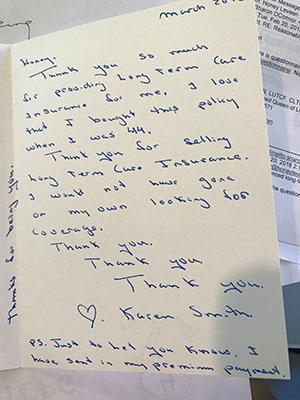 March 20
Honey.
Thank you so much
for providing Long Term Care
Insurance for me. I love
that I bought this policy
when I was 44.
Thank you for selling
Long Term Care Insurance.
I would not have gone
on my own looking for
coverage.
Thank you.
Thank you
Thank you.
♡. Karen Smith.
PS. Just to let you know. I
have sent in my premium payment.
Thanks for being you.
Honey Leve
Sharon OConnor
Tue, Feb 20, 201
t: RE: Reasonab
s questionnair
LUTCF, CLTC
Queen of L